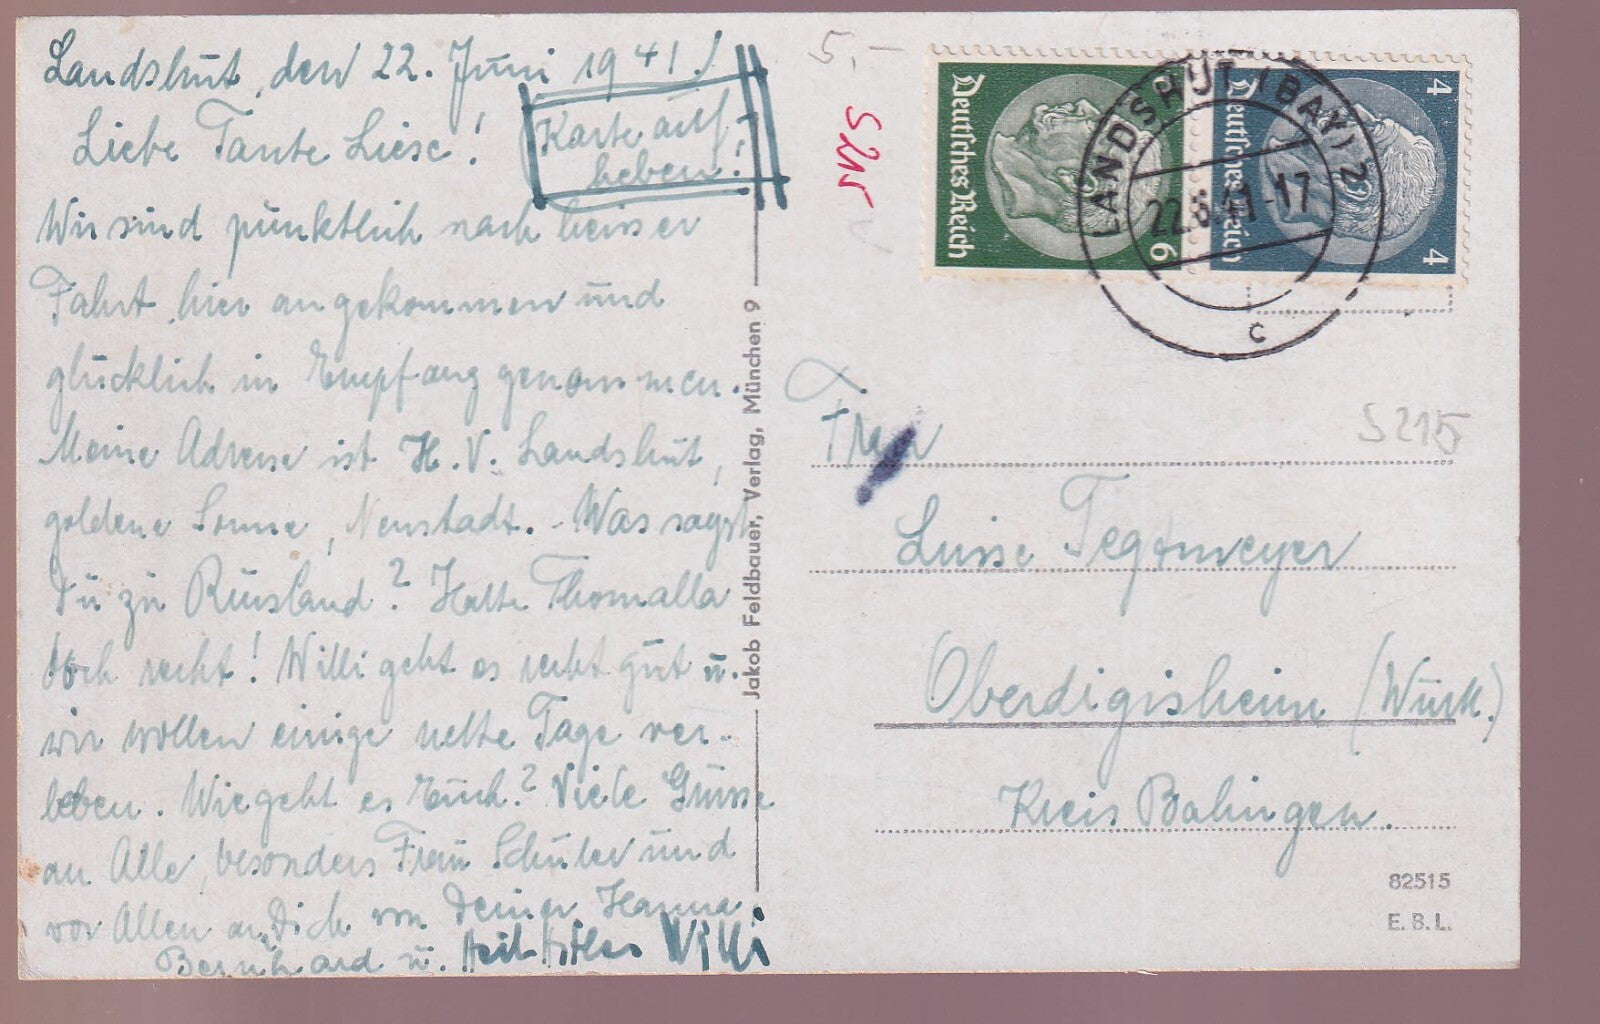 Landshut, den 22. Juni 1941!
Karte auf-
heben!
Liebe Tante Liese!
Wir sind pünktlich nach heisser
Fahrt hier angekommen und
glücklich in Empfang genommen.
Meine Adresse ist H. V. Landshut,
goldene Sonne, Neustadt. - Was sagst
Du zu Russland? Hatte Thomalla
doch recht! Willi geht es recht gut u.
wir wollen einige nette Tage ver-
leben. Wie geht es Euch? Viele Grüsse
an Alle, besonders Frau Schuler und
vor Allen an Dich von Deiner Hanna,
Bernhard u. Heil Hitler Willi
Jakob Feldbauer, Verlag, München 9
5,-
S215
Deutsches Reich
6
Deutsches Reich
4
4
LANDSHUT (BAY) 2
22.6.41-17
c
S215
Frau
Luise Tegtmeyer
Oberdigisheim (Württ.)
Kreis Balingen.
82515
E. B. L.